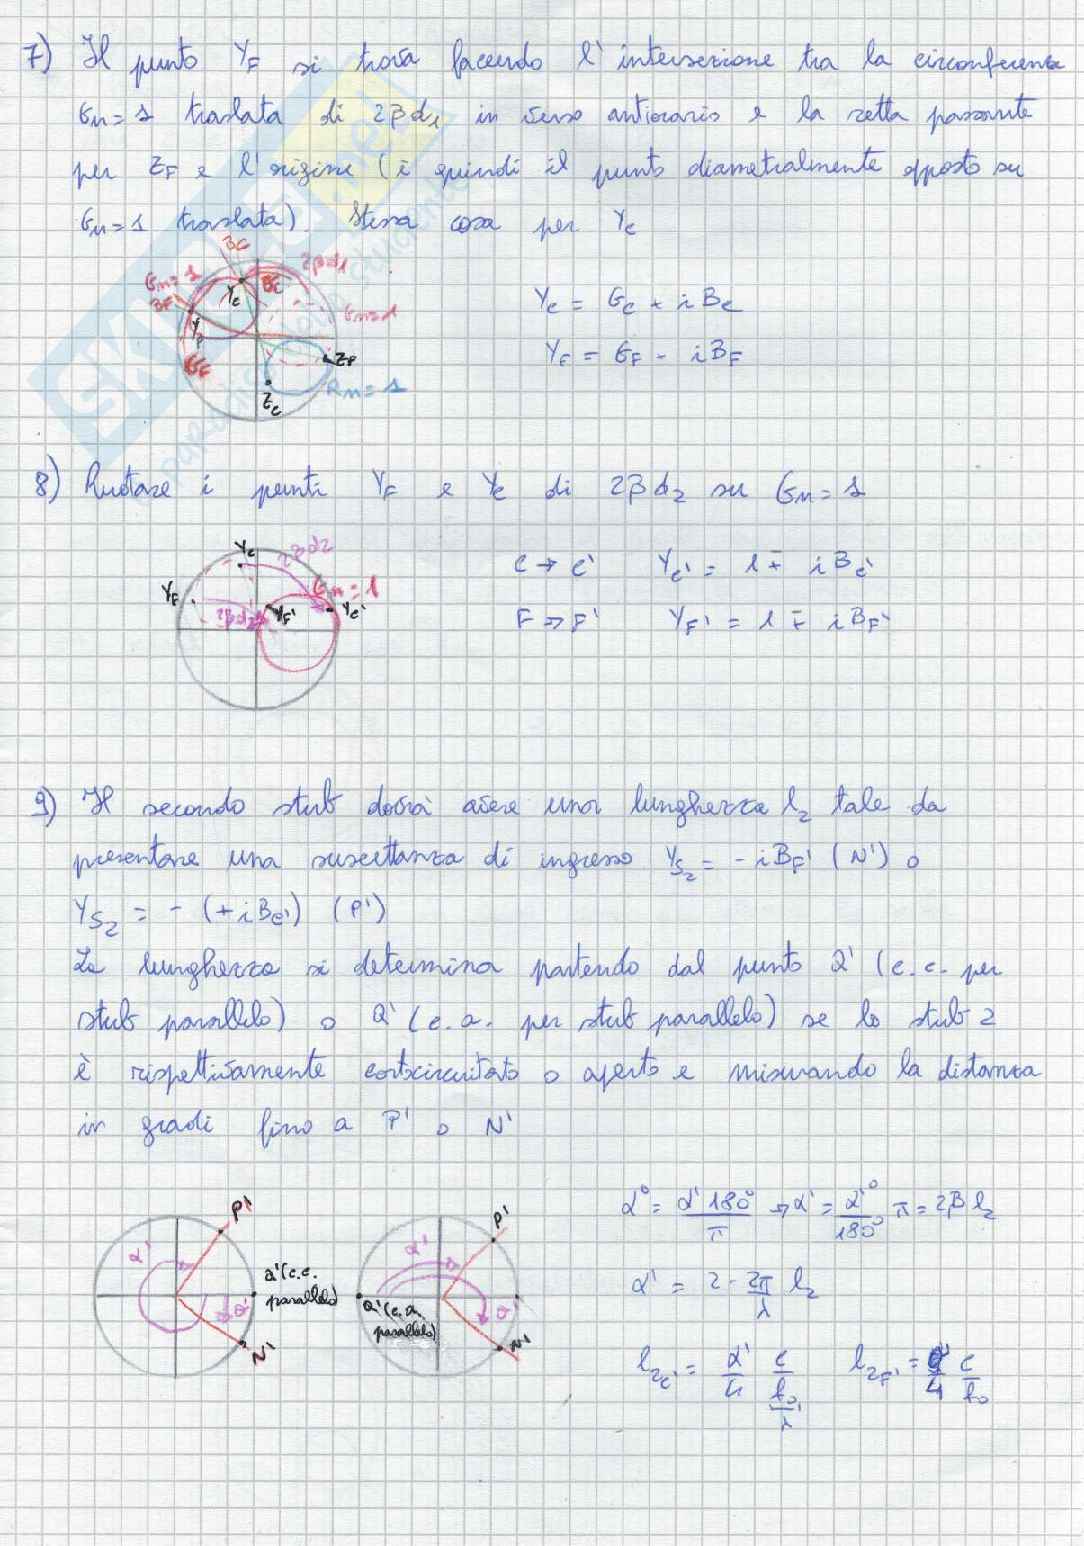 7) Il punto YF si trova facendo l'intersezione tra la circonferenza
Gn=1 traslata di 2βd1 in senso antiorario e la retta passante
per ZF e l'origine (è quindi il punto diametralmente opposto su
Gn=1 traslata). Stessa cosa per Yc
Bc
Gn=1
BF
Yc
Bc
2βd1
Gn=1
YF
GF
ZF
Rn=1
Zc
Yc = Gc + iBc
YF = GF - iBF
8) Ruotare i punti YF e Yc di 2βd2 su Gn=1
Yc
2βd2
YF
Gn=1
2βd2
YF'
Yc'
C → C' Yc' = 1 ∓ iBc'
F → F' YF' = 1 ∓ iBF'
9) Il secondo stub dovrà avere una lunghezza l2 tale da
presentare una suscettanza di ingresso YS2 = -iBF' (N') o
YS2 = -(+iBc') (P')
La lunghezza si determina partendo dal punto Q' (c.c. per
stub parallelo) o Q' (c.a. per stub parallelo) se lo stub 2
è rispettivamente cortocircuitato o aperto e misurando la distanza
in gradi fino a P' o N'
P'
α'
Q'(c.c.
parallelo)
α'
N'
P'
α'
Q'(c.a.
parallelo)
α'
N'
α° = α' 180°/π → α' = α'°/180° π = 2βl2
α' = 2·2π/λ l2
l2c' = α'/4 c/f0 l2F' = α'/4 c/f0
λ